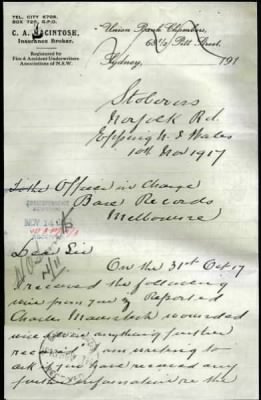 TEL. CITY 6708.
BOX 725, G.P.O.
C. A. MACINTOSH,
Insurance Broker.
Registered by
Fire & Accident Underwriters
Associations of N.S.W.
Union Bank Chambers,
68½ Pitt Street,
Sydney, 191
Norfolk Rd.
Epping N. S Wales
10th Nov 1917
To the Officer in Charge
Base Records
Melbourne
NOV 14
Dear Sir
On the 31st Oct 17
I received the following
wire from you "Reported
Charles wounded
will advise anything further
received" I am writing to
ask if you have received any
further information re the